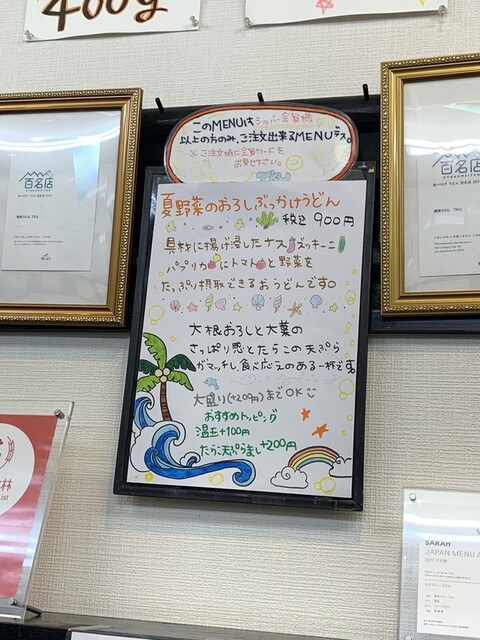 400g
このMENUはシルバー会員様
以上の方のみ、ご注文出来るMENUデス。
※ご注文時に会員カードを
お見せ下さい。
夏野菜のおろしぶっかけうどん
税込 900円
具材に揚げ浸したナス ズッキーニ
パプリカ にトマト と野菜を
たっぷり摂取できるおうどんです。
大根おろしと大葉の
さっぱり感とたらこの天ぷら
がマッチし食べ応えのある一杯です。
大盛り(+200円)までOK
おすすめトッピング
温玉+100円
たらこ天ぷらまし+200円
百名店
百名店
SARAH
JAPAN MENU A